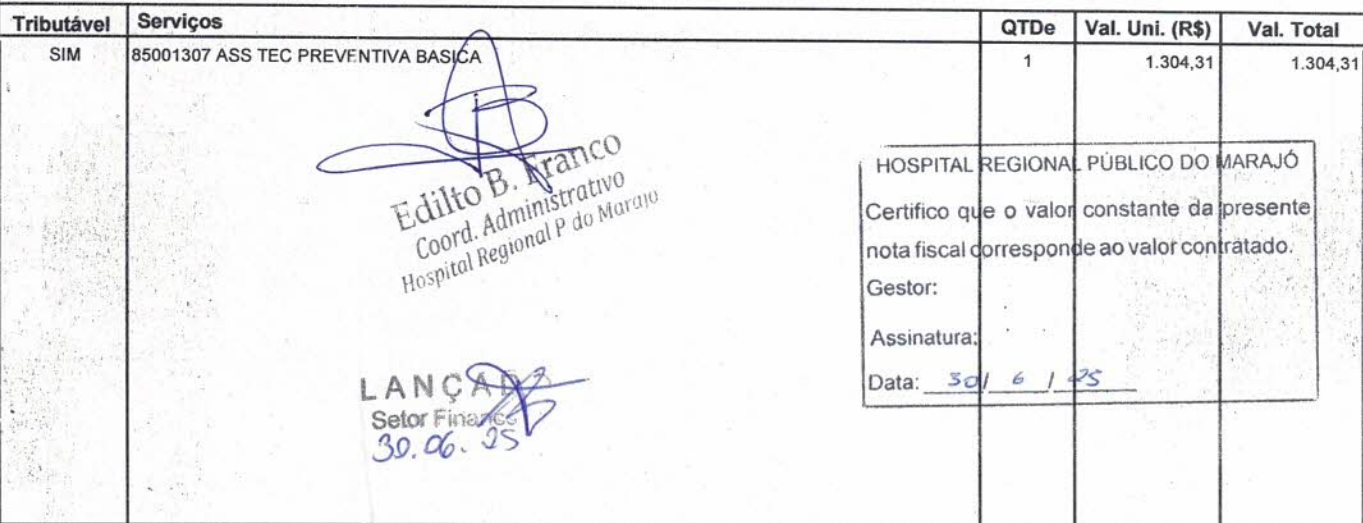 Tributável Serviços QTDe Val. Uni. (R$) Val. Total
SIM 85001307 ASS TEC PREVENTIVA BASICA 1 1.304,31 1.304,31
Edilto B. Franco
Coord. Administrativo
Hospital Regional P do Marajó
HOSPITAL REGIONAL PÚBLICO DO MARAJÓ
Certifico que o valor constante da presente
nota fiscal corresponde ao valor contratado.
Gestor:
Assinatura:
Data: 30/ 6 / 25
LANÇADO
Setor Financ
30.06.25